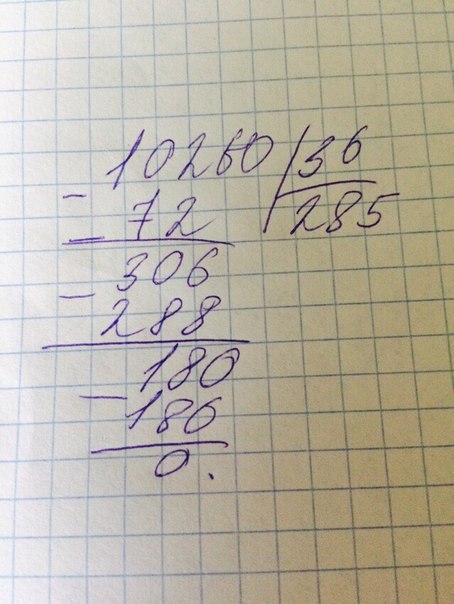 10260 | 36
- 72 | 285
306
- 288
180
- 180
0.